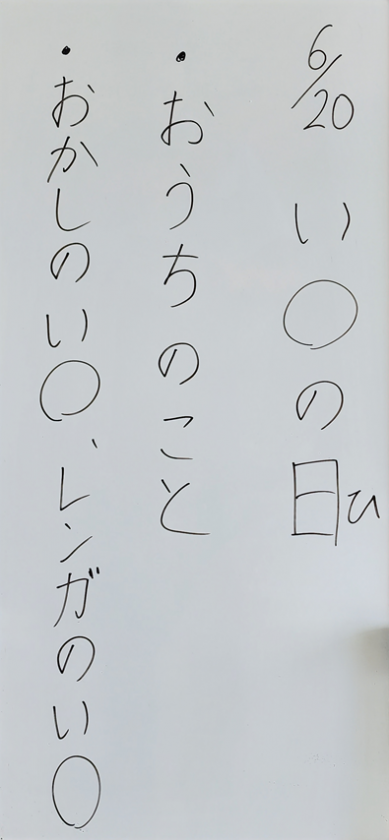 6/20 い〇の日ひ
・おうちのこと
・おかしのい〇、レンガのい〇